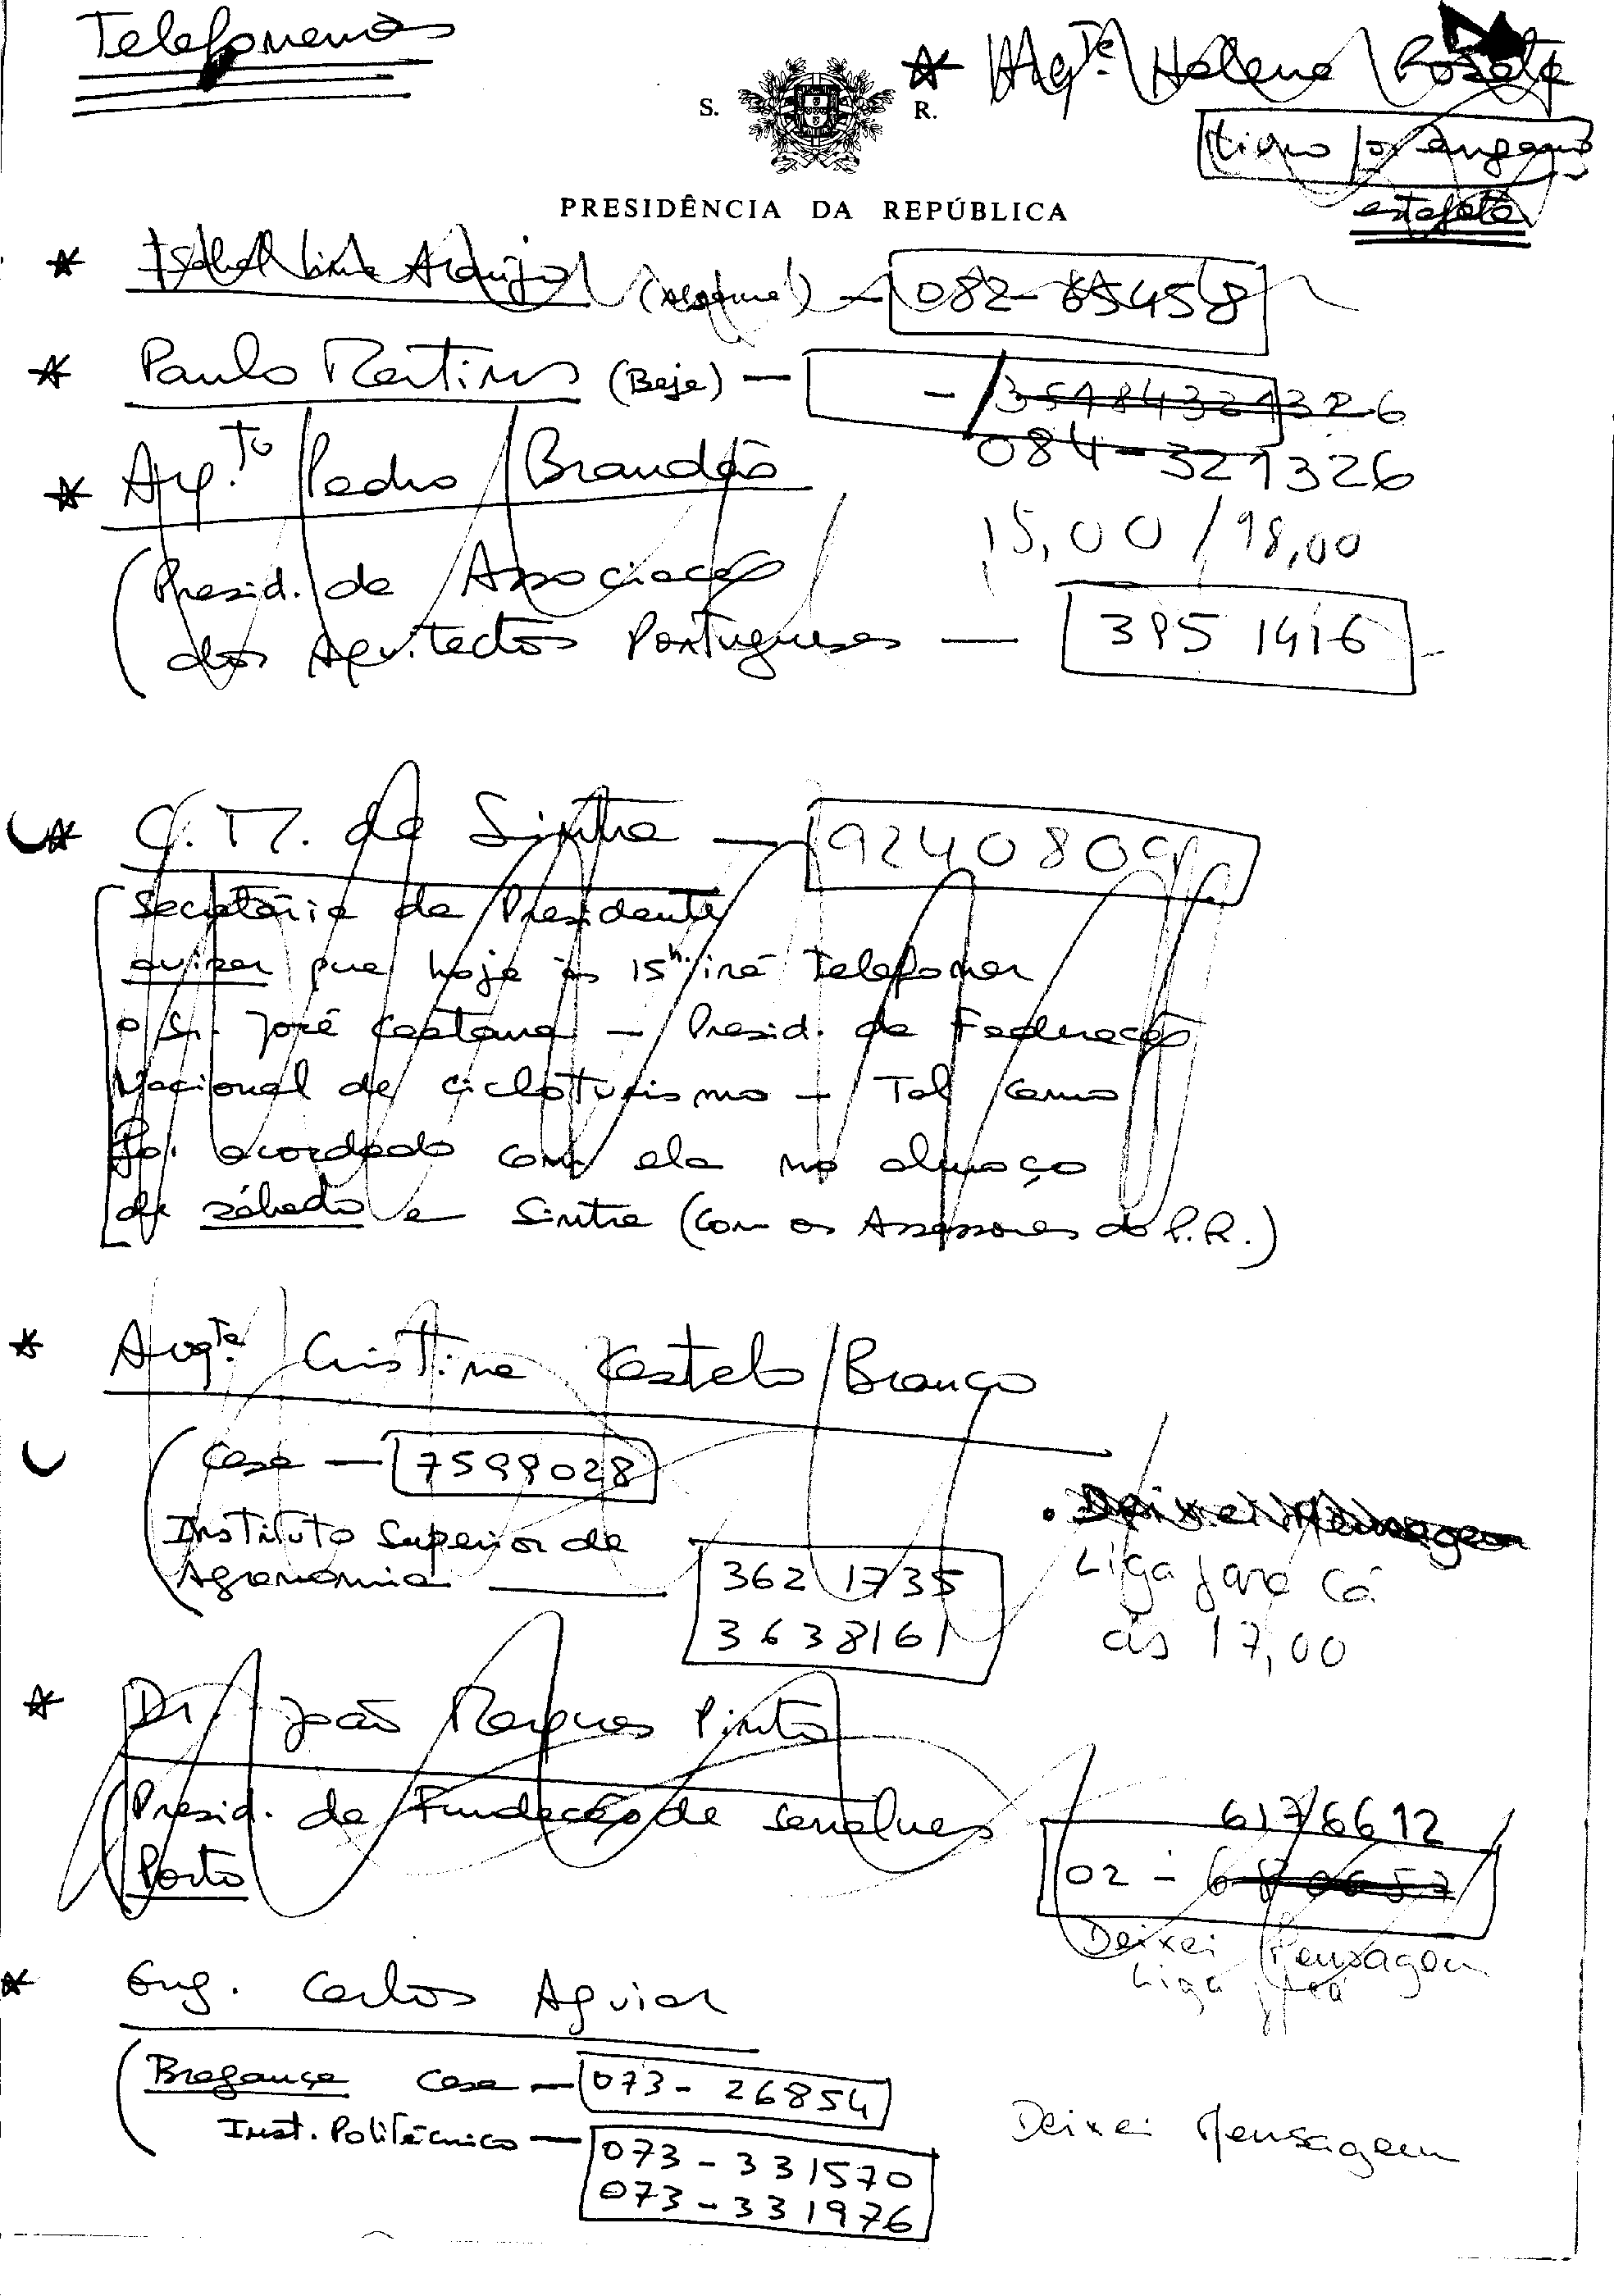 Telefonemas
* Arqta. Helena Roseta
livro p/ engano
estafeta
S. R.
PRESIDÊNCIA DA REPÚBLICA
* Isabel Lima Araújo (Algarve) — 082-65458
* Paulo Martins (Beja) — - 351843213 26
084-321326
* Arq.to Pedro Brandão
15,00 / 18,00
(Presid. da Associação
dos Arquitectos Portugueses — 395 1416
* C. M. de Sintra — 9240809
Secretária da Presidente
avisar que hoje às 15h. irá Telefonar
o Sr. José Caetano — Presid. da Federação
Nacional de Cicloturismo — Tal como
foi acordado com ela no almoço
de sábado e Sintra (com os Assessores do P.R.)
* Arqta. Cristina Castelo Branco
(Casa — 7599028
Instituto Superior de
Agronomia — 362 1735
3638161
• Deixei Mensagem
Liga para cá
às 17,00
* Dr. João Marques Pinto
(Presid. da Fundação de Serralves
Porto
6176612
02 - 680657
Deixei Mensagem
Liga p/ cá
* Eng. Carlos Aguiar
(Bragança Casa — 073- 26854
Inst. Politécnico — 073 - 331570
073 - 331976
Deixei Mensagem